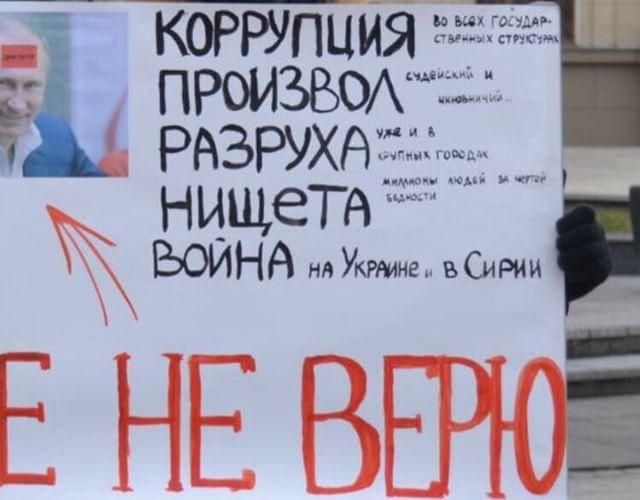 КОРРУПЦИЯ во всех государ-
ственных структурах
ПРОИЗВОЛ судейский и
чиновничий...
РАЗРУХА уже и в
крупных городах
НИЩеТА миллионы людей за чертой
бедности
ВОЙНА на Украине и в Сирии
Е НЕ ВЕРЮ